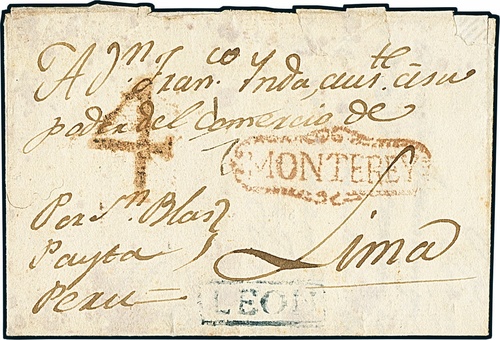 A Dn Franco Ynda, auste á su
poder del Comercio de
4
MONTEREY
Lima
Por Sn Blas
Payta
Peru
LEON